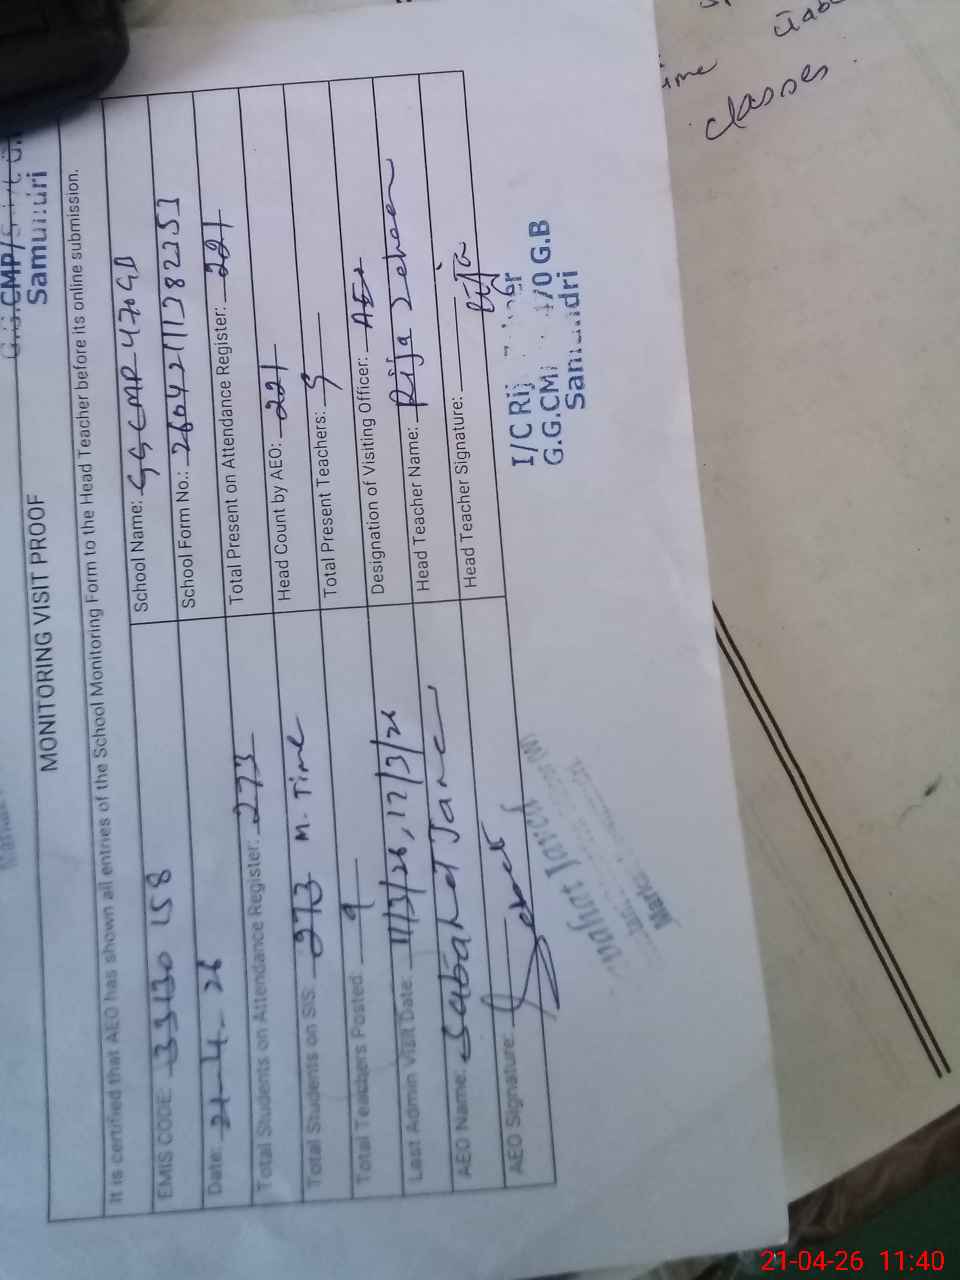 Samundri
MONITORING VISIT PROOF
It is certified that AEO has shown all entries of the School Monitoring Form to the Head Teacher before its online submission.
EMIS CODE: 33130158 School Name: GGCMP 470 GB
Date: 21-4-26 School Form No.:
Total Students on Attendance Register: 273 Total Present on Attendance Register: 221
Total Students on SIS: 273 M. Time Head Count by AEO: 221
Total Teachers Posted: 9 Total Present Teachers: 9
Last Admin Visit Date: 11/3/26, 17/3/26 Designation of Visiting Officer: AEO
AEO Name: Sabahat Javed Head Teacher Name: Rija
AEO Signature: Head Teacher Signature: Rija
I/C
G.G.CM 470 G.B
Samundri
Javed
Marka
time
classes.
21-04-26 11:40